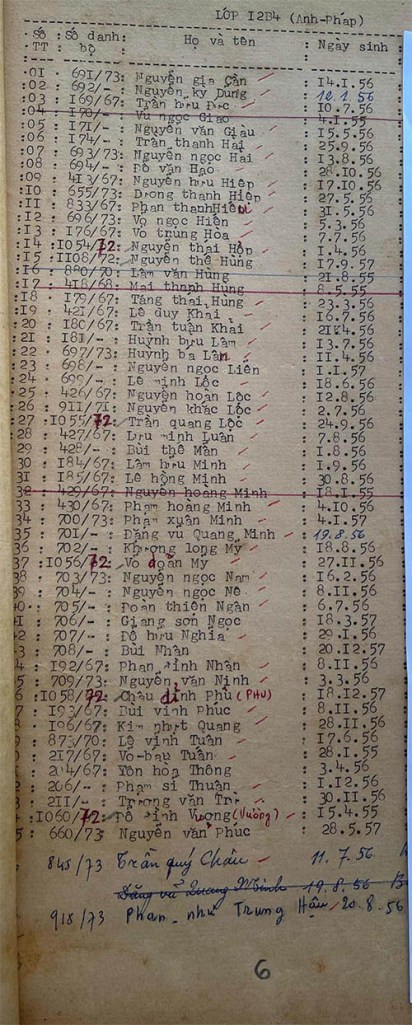 LỚP I2B4 (Anh-Pháp)
Số TT : Số danh bộ : Họ và tên : Ngày sinh :
:01 : 691/73: Nguyễn gia Cần : I4.I.56
:02 : 692/-- : Nguyễn kỳ Dung : 12.1.56
:03 : I69/67: Trần hữu Đức : I0.7.56
:04 : I70/-- Vũ ngọc Giao : 4.I.55
:05 : I7I/-- : Nguyễn văn Giàu : I5.5.56
:06 : I74/-- : Trần thanh Hải : 25.9.56
:07 : 693/73: Nguyễn ngọc Hải : I3.8.56
:08 : 694/-- : Đỗ văn Hạo : 28.I0.56
:09 : 4I3/67: Nguyễn hữu Hiệp : I7.I0.56
:I0 : 655/73: Dương thanh Hiệp : 27.5.56
:II : 833/67: Phan thanh Hiếu : 3I.5.56
:I2 : 696/73: Võ ngọc Hiện : 5.3.56
:I3 : I76/67: Võ trung Hòa : 7.7.56
:I4 :I054/72: Nguyễn thái Hợp : I.4.56
:I5 :II08/72: Nguyễn thế Hùng : I7.9.57
:I6 : 880/70: Lâm văn Hùng : 2I.8.55
:I7 : 4I8/68: Mai thanh Hùng : 8.5.55
:I8 : I79/67: Tăng thái Hùng : 23.3.56
:I9 : 42I/67: Lê duy Khải : I6.7.56
:20 : I80/67: Trần tuấn Khải : 2I.4.56
:2I : I8I/-- : Huỳnh bửu Lâm : I3.7.56
:22 : 697/73: Huỳnh ba Lân : II.4.56
:23 : 698/-- : Nguyễn ngọc Liên : I.I.57
:24 : 699/-- : Lê minh Lộc : I8.6.56
:25 : 426/67: Nguyễn hoàn Lộc : I2.8.56
:26 : 9II/7I: Nguyễn khắc Lộc : 2.7.56
:27 :I055/72: Trần quang Lộc : 24.9.56
28 : 427/67: Lưu minh Luân : 7.8.56
29 : 428/-- : Bùi thế Mẫn : I.8.56
30 : I84/67: Lâm hữu Minh : I.9.56
3I : I85/67: Lê hồng Minh : 30.8.56
32 : 429/67: Nguyễn hoàng Minh : I8.I.55
33 : 430/67: Phạm hoàng Minh : 4.I0.56
34 : 700/73: Phạm xuân Minh : 4.I.57
35 : 70I/-- : Đặng vũ Quang Minh : 19.8.56
36 : 702/-- : Khương long Mỹ : I8.8.56
37 :I056/72: Võ doãn Mỹ : 27.II.56
38 : 703/73: Nguyễn ngọc Nam : I6.2.56
39 : 704/-- : Nguyễn ngọc Nê : 8.II.56
40 : 705/-- : Đoàn thiện Ngân : 6.7.56
4I : 706/-- : Giang sơn Ngọc : I8.3.57
42 : 707/-- : Đỗ hữu Nghĩa : 29.I.56
3 : 708/-- : Bùi Nhân : 20.I2.57
4 : I92/67: Phan đình Nhận : 8.II.56
5 : 709/73: Nguyễn văn Ninh : 3.3.56
6 :I058/72: Châu đình Phú (PHÚ) : I8.I2.57
7 : I93/67: Bùi vinh Phúc : 8.II.56
8 : I96/67: Kim nhựt Quang : 28.II.56
9 : 873/70: Lê vinh Tuấn : I7.6.56
0 : 2I7/67: Võ bau Tuấn : 28.I.55
I : 204/67: Tôn hòa Thông : 3.4.56
2 : 206/-- : Phạm sĩ Thuần : I.I2.56
3 : 2II/-- : Trương văn Trí : 30.II.56
4 :I060/72: Đỗ đình Vượng (Vương) : I5.4.55
5 : 660/73 Nguyễn văn Phúc : 28.5.57
845/73 Trần quý Châu 11.7.56
Đặng vũ Quang Minh 19.8.56
918/73 Phan như Trung Hậu 20.8.56
6